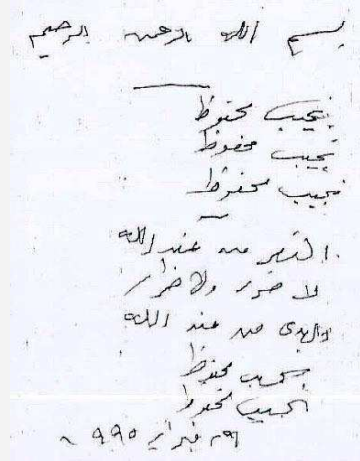 بسم الله الرحمن الرحيم
نجيب محفوظ
نجيب محفوظ
نجيب محفوظ
النصر من عند الله
لا ضرر ولا ضرار
والهدى من عند الله
نجيب محفوظ
نجيب محفوظ
فبراير ٩٩٥